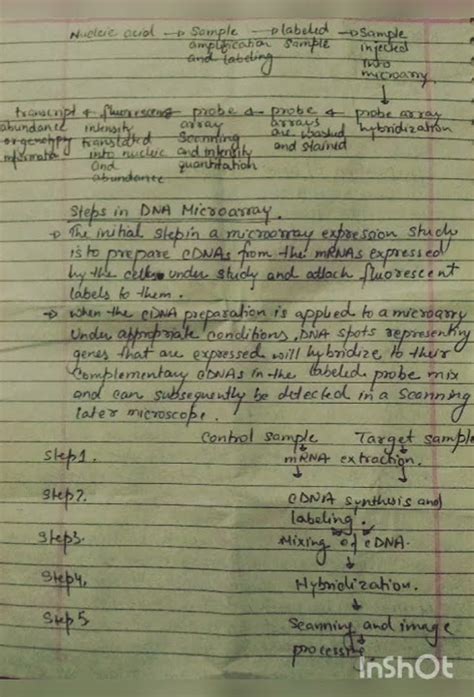 Nucleic acid → Sample → labeled → Sample
amplification sample injected
and labeling into
microarry
transcript ← fluorescence probe ← probe ← probe array
abundance intensity array arrays hybridization
or genotype translated scanning are washed
into nucleic and intensity and stained
and quantitation
abundance
Steps in DNA Microarray.
→ The initial step in a microarray expression study
is to prepare cDNAs from the mRNAs expressed
by the cells under study and attach fluorescent
labels to them.
→ when the cDNA preparation is applied to a microarry
under appropriate conditions, DNA spots representing
genes that are expressed will hybridize to their
complementary cDNAs in the labeled probe mix
and can subsequently be detected in a scanning
later microscope.
Control sample Target sample
Step1. mRNA extraction.
Step2. cDNA synthesis and
labeling.
Step3. Mixing of cDNA.
Step4. Hybridization.
Step5. Scanning and image
processing
InShOt